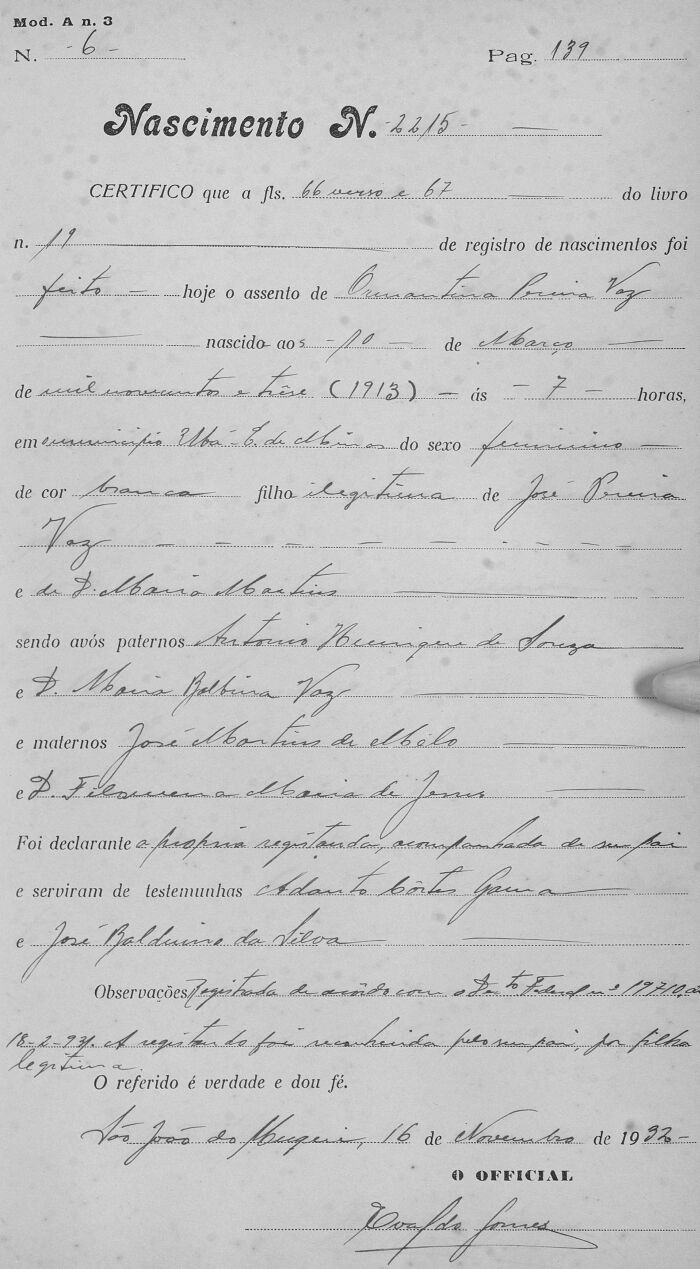 Mod. A n. 3
N. -6- Pag. 139
Nascimento N. -2215-
CERTIFICO que a fls. 66 verso e 67 do livro
n. 19 de registro de nascimentos foi
feito hoje o assento de Ormantina Pereira Vaz
nascido aos -10- de Março
de mil novecentos e trêse (1913) - ás -7- horas,
em municipio Ubá-E. de Minas do sexo feminino
de cor branca filho ilegitima de José Pereira
Vaz
e de D. Maria Martins
sendo avós paternos Antonio Henrique de Souza
e D. Maria Balbina Vaz
e maternos José Martins de Mélo
e D. Filomena Maria de Jesus
Foi declarante a propria registanda, acompanhada de seu pai
e serviram de testemunhas Adauto Côrtes Gama
e José Balduino da Silva
Observações Registrada de acôrdo com o Decto Federal nº 19710, de
18-2-931. A registanda foi reconhecida pelo seu pai, por filha
legitima.
O referido é verdade e dou fé.
São João do Muquí, 16 de Novembro de 1932-
O OFFICIAL
Evaldo Gomes